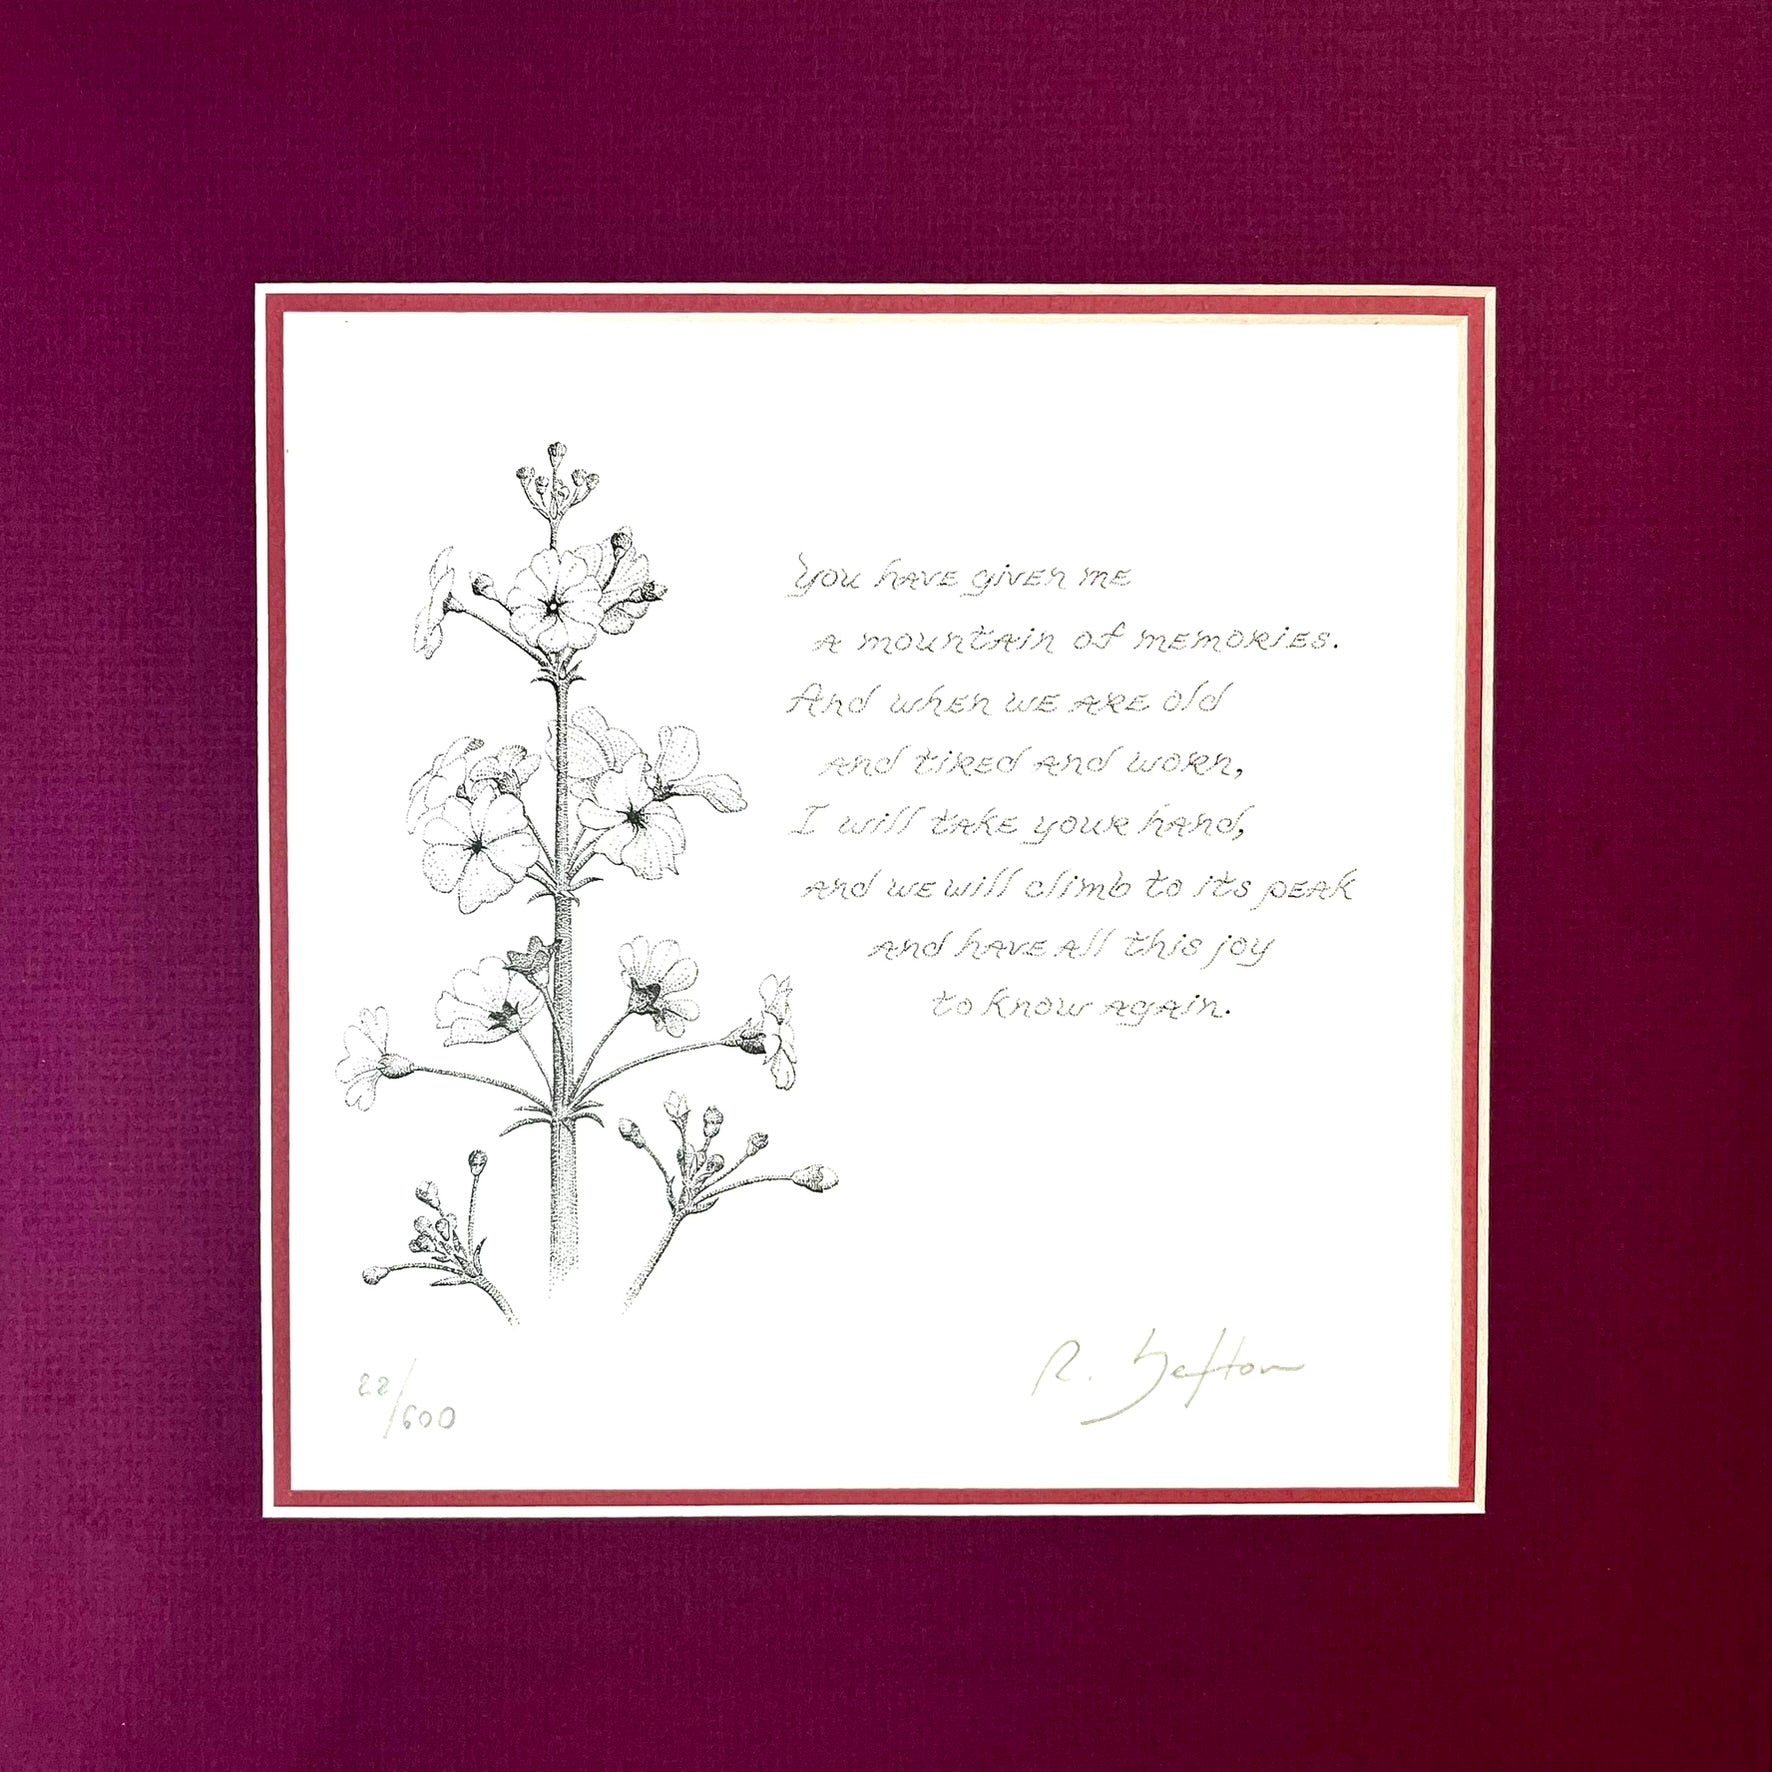 You have given me
a mountain of memories.
And when we are old
and tired and worn,
I will take your hand,
and we will climb to its peak
and have all this joy
to know again.
22/600
R.